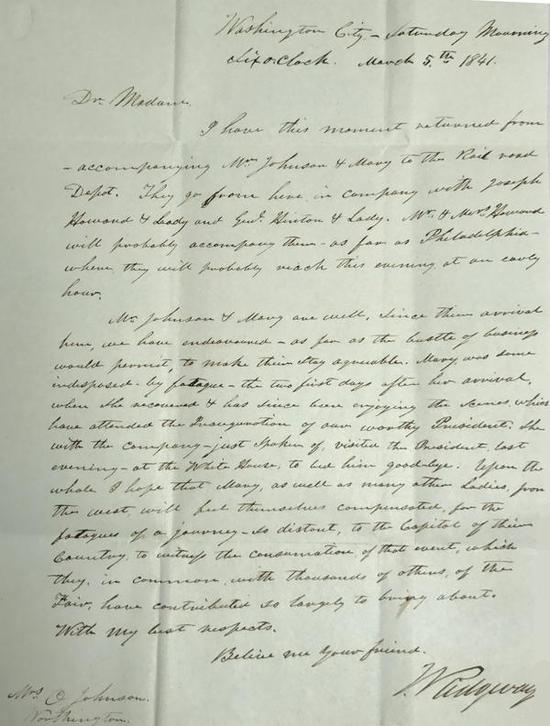 Washington City - Saturday Mourning
Six o.Clock. March 5.th 1841.
Dr. Madam.
I have this moment returned from
- accompanying Mr. Johnson & Mary to the Rail road
Depot. They go from here, in company with Joseph
Howard & Lady and Genl. Hinton & Lady. Mr. & Mrs. Howard
will probably accompany them - as far as Philadelphia -
where they will probably reach this evening at an early
hour.
Mr. Johnson & Mary are well, since their arrival
here, we have endeavoured - as far as the bustle of business
would permit, to make their stay agreeable. Mary was some
indisposed - by fatague - the two first days after her arrival,
when she recovered & has since been enjoying the scenes, which
have attended the Inauguration of our worthy President. She
with the company - just spoken of, visited the President, last
evening - at the White House, to bid him good-bye. Upon the
whole I hope that Mary, as well as many other Ladies, from
the west, will feel themselves compensated, for the
fatagues of a journey - so distant, to the Capitol of their
Country, to witness the consumation of that event, which
they, in common, with thousands of others, of the
Fair, have contributed so largely to bring about.
With my best respects.
Belive me your friend.
J. Ridgway
Mrs. O Johnson.
Worthington.